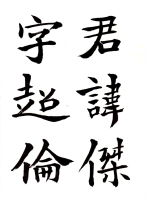 君諱傑
字超倫